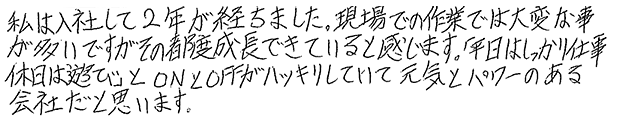 私は入社して2年が経ちました。現場での作業では大変な事
が多いですがその都度成長できていると感じます。「平日はしっかり仕事
休日は遊び」とONとOFFがハッキリしていて元気とパワーのある
会社だと思います。